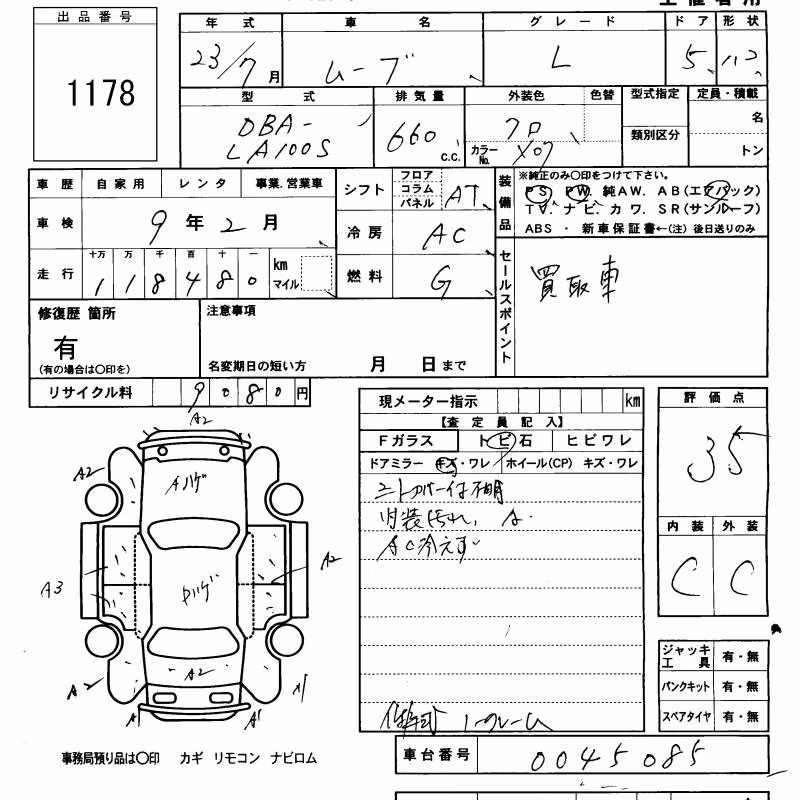 出品番号
1178
年式 車名 グレード ドア 形状
23/7月 ムーブ L 5 112
型式 排気量 外装色 色替 型式指定 定員・積載
DBA-
LA100S
660 C.C.
クロ
カラーNo. X07
類別区分
名
トン
車歴 自家用 レンタ 事業.営業車
車検 9年2月
走行 十万 万 千 百 十 一
1 1 8 4 8 0 km マイル
シフト フロア コラム パネル AT
冷房 AC
燃料 G
装備品
※純正のみ〇印をつけて下さい。
PS. PW. 純AW. AB(エアバック)
TV. ナビ. カワ. SR(サンルーフ)
ABS ・ 新車保証書←(注) 後日送りのみ
セールスポイント
買取車
修復歴 箇所
有
(有の場合は〇印を)
注意事項
名変期日の短い方 月 日まで
リサイクル料 9080円
現メーター指示 km
【査定員記入】
Fガラス トビ石 ヒビワレ
ドアミラー キズ・ワレ ホイール(CP) キズ・ワレ
内装汚れ、
AC冷えず
評価点
35
内装 外装
C C
A2
A2
Aハゲ
A3
A2
ハゲ
A2
A2
A1
A1
ジャッキ工具 有・無
パンクキット 有・無
スペアタイヤ 有・無
事務局預り品は〇印 カギ リモコン ナビロム
車台番号 0045085